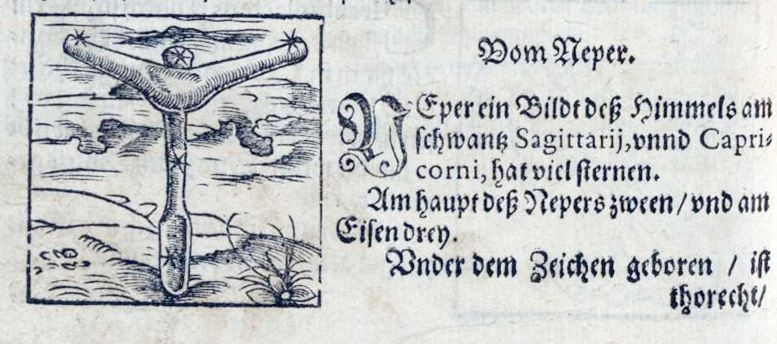 Vom Neper.
NEper ein Bildt deß Himmels am
schwantz Sagittarij, vnnd Capri⸗
corni, hat viel sternen.
Am haupt deß Nepers zween / vnd am
Eisen drey.
Vnder dem Zeichen geboren / ist
thorecht /